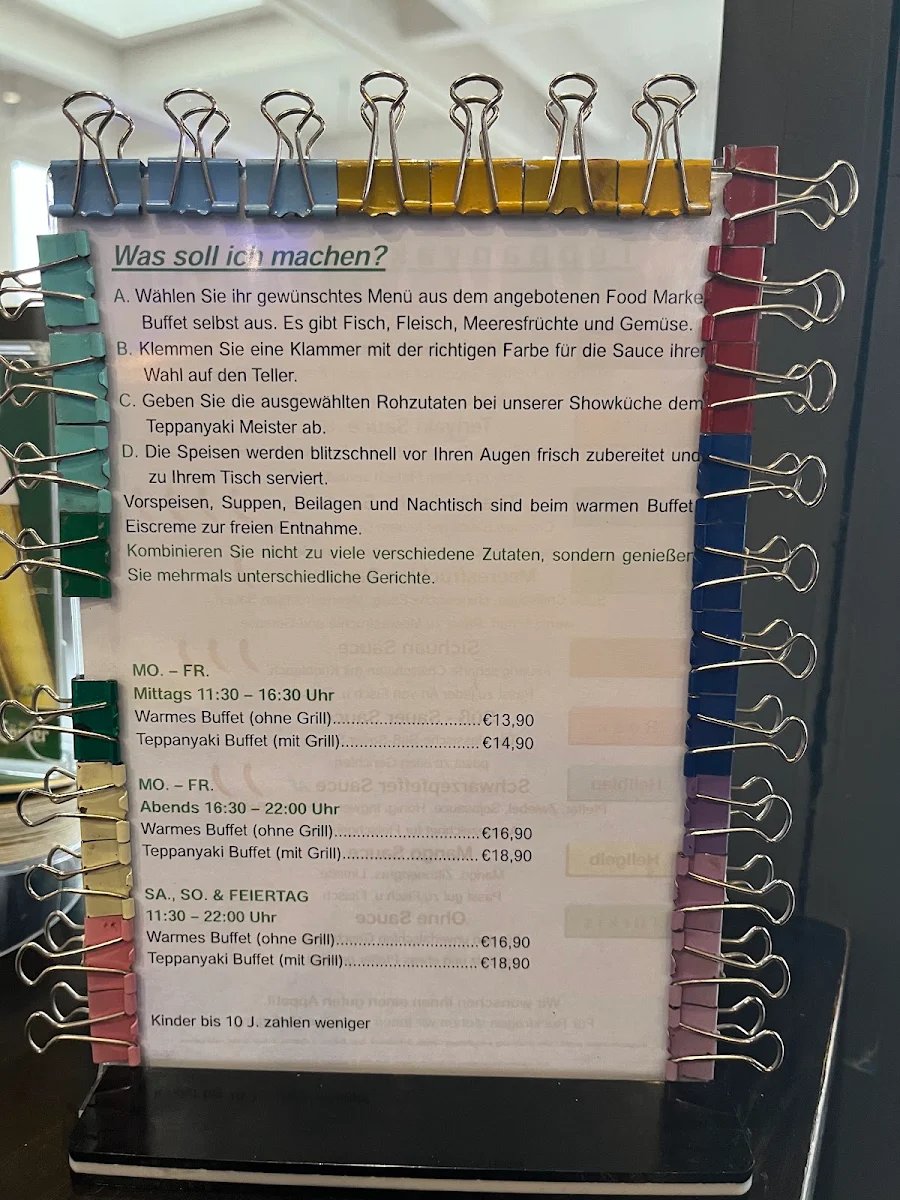 Was soll ich machen?
A. Wählen Sie ihr gewünschtes Menü aus dem angebotenen Food Marke
Buffet selbst aus. Es gibt Fisch, Fleisch, Meeresfrüchte und Gemüse.
B. Klemmen Sie eine Klammer mit der richtigen Farbe für die Sauce ihrer
Wahl auf den Teller.
C. Geben Sie die ausgewählten Rohzutaten bei unserer Showküche dem
Teppanyaki Meister ab.
D. Die Speisen werden blitzschnell vor Ihren Augen frisch zubereitet und
zu Ihrem Tisch serviert.
Vorspeisen, Suppen, Beilagen und Nachtisch sind beim warmen Buffet
Eiscreme zur freien Entnahme.
Kombinieren Sie nicht zu viele verschiedene Zutaten, sondern genießen
Sie mehrmals unterschiedliche Gerichte.
MO. – FR.
Mittags 11:30 – 16:30 Uhr
Warmes Buffet (ohne Grill)........................€13,90
Teppanyaki Buffet (mit Grill)......................€14,90
MO. – FR.
Abends 16:30 – 22:00 Uhr
Warmes Buffet (ohne Grill)........................€16,90
Teppanyaki Buffet (mit Grill)......................€18,90
SA., SO. & FEIERTAG
11:30 – 22:00 Uhr
Warmes Buffet (ohne Grill)........................€16,90
Teppanyaki Buffet (mit Grill)......................€18,90
Kinder bis 10 J. zahlen weniger